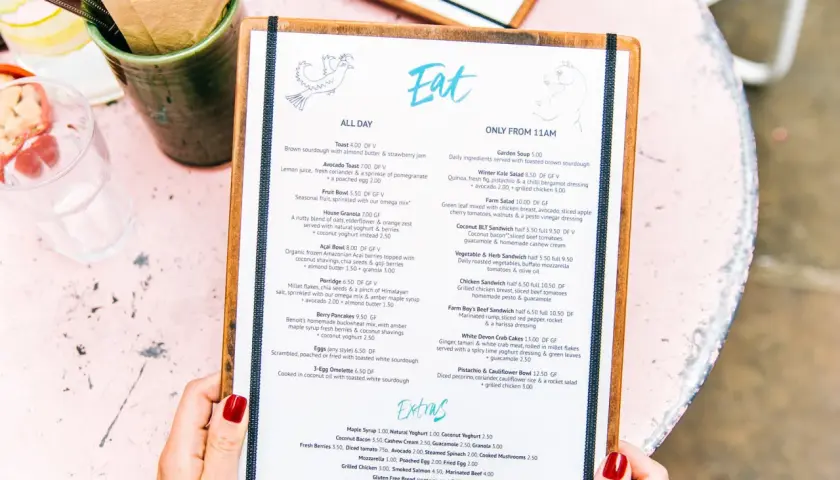 Eat
ALL DAY
Toast 4.00 DF V
Brown sourdough with almond butter & strawberry jam
Avocado Toast 7.00 DF V
Lemon juice, fresh coriander & a sprinkle of pomegranate
+ a poached egg 2.00
Fruit Bowl 5.50 DF GF V
Seasonal fruit, sprinkled with our omega mix*
House Granola 7.00 GF
A nutty blend of oats, elderflower & orange zest
served with natural yoghurt & berries
+ coconut yoghurt instead 2.50
Açaí Bowl 8.00 DF GF V
Organic frozen Amazonian Açaí berries topped with
coconut shavings, chia seeds & goji berries
+ almond butter 1.50 + granola 3.00
Porridge 6.50 DF GF V
Millet flakes, chia seeds & a pinch of Himalayan
salt, sprinkled with our omega mix & amber maple syrup
+ avocado 2.00 + almond butter 1.50
Berry Pancakes 9.50 GF
Benoit's homemade buckwheat mix, with amber
maple syrup fresh berries & coconut shavings
+ coconut yoghurt 2.50
Eggs (any style) 6.50 DF
Scrambled, poached or fried with toasted white sourdough
3-Egg Omelette 6.50 DF
Cooked in coconut oil with toasted white sourdough
ONLY FROM 11AM
Garden Soup 5.00
Daily ingredients served with toasted brown sourdough
Winter Kale Salad 8.50 DF GF V
Quinoa, fresh fig, pistachio & a chilli bergamot dressing
+ avocado 2.00, + grilled chicken 3.00
Farm Salad 10.00 DF GF
Green leaf mixed with chicken breast, avocado, sliced apple
cherry tomatoes, walnuts & a pesto vinegar dressing
Coconut BLT Sandwich half 5.50 full 9.50 DF V
Coconut bacon**, sliced beef tomatoes
guacamole & homemade cashew cream
Vegetable & Herb Sandwich half 5.50 full 9.50
Daily roasted vegetables, buffalo mozzarella
tomatoes & olive oil
Chicken Sandwich half 6.50 full 10.50 DF
Grilled chicken breast, sliced beef tomatoes
homemade pesto & guacamole
Farm Boy's Beef Sandwich half 6.50 full 10.50 DF
Marinated rump, sliced red pepper, rocket
& a harissa dressing
White Devon Crab Cakes 13.00 DF GF
Ginger, tamari & white crab meat, rolled in millet flakes
served with a spicy lime yoghurt dressing & green leaves
+ guacamole 2.50
Pistachio & Cauliflower Bowl 12.50 GF
Diced pecorino, coriander, cauliflower rice & a rocket salad
+ grilled chicken 3.00
Extras
Maple Syrup 1.00, Natural Yoghurt 1.00, Coconut Yoghurt 2.50
Coconut Bacon 3.50, Cashew Cream 2.50, Guacamole 2.50, Granola 3.00
Fresh Berries 3.50, Diced tomato 75p, Avocado 2.00, Steamed Spinach 2.00, Cooked Mushrooms 2.50
Mozzarella 1.00, Poached Egg 2.00, Fried Egg 2.00
Grilled Chicken 3.00, Smoked Salmon 4.50, Marinated Beef 4.00
Gluten Free Bread